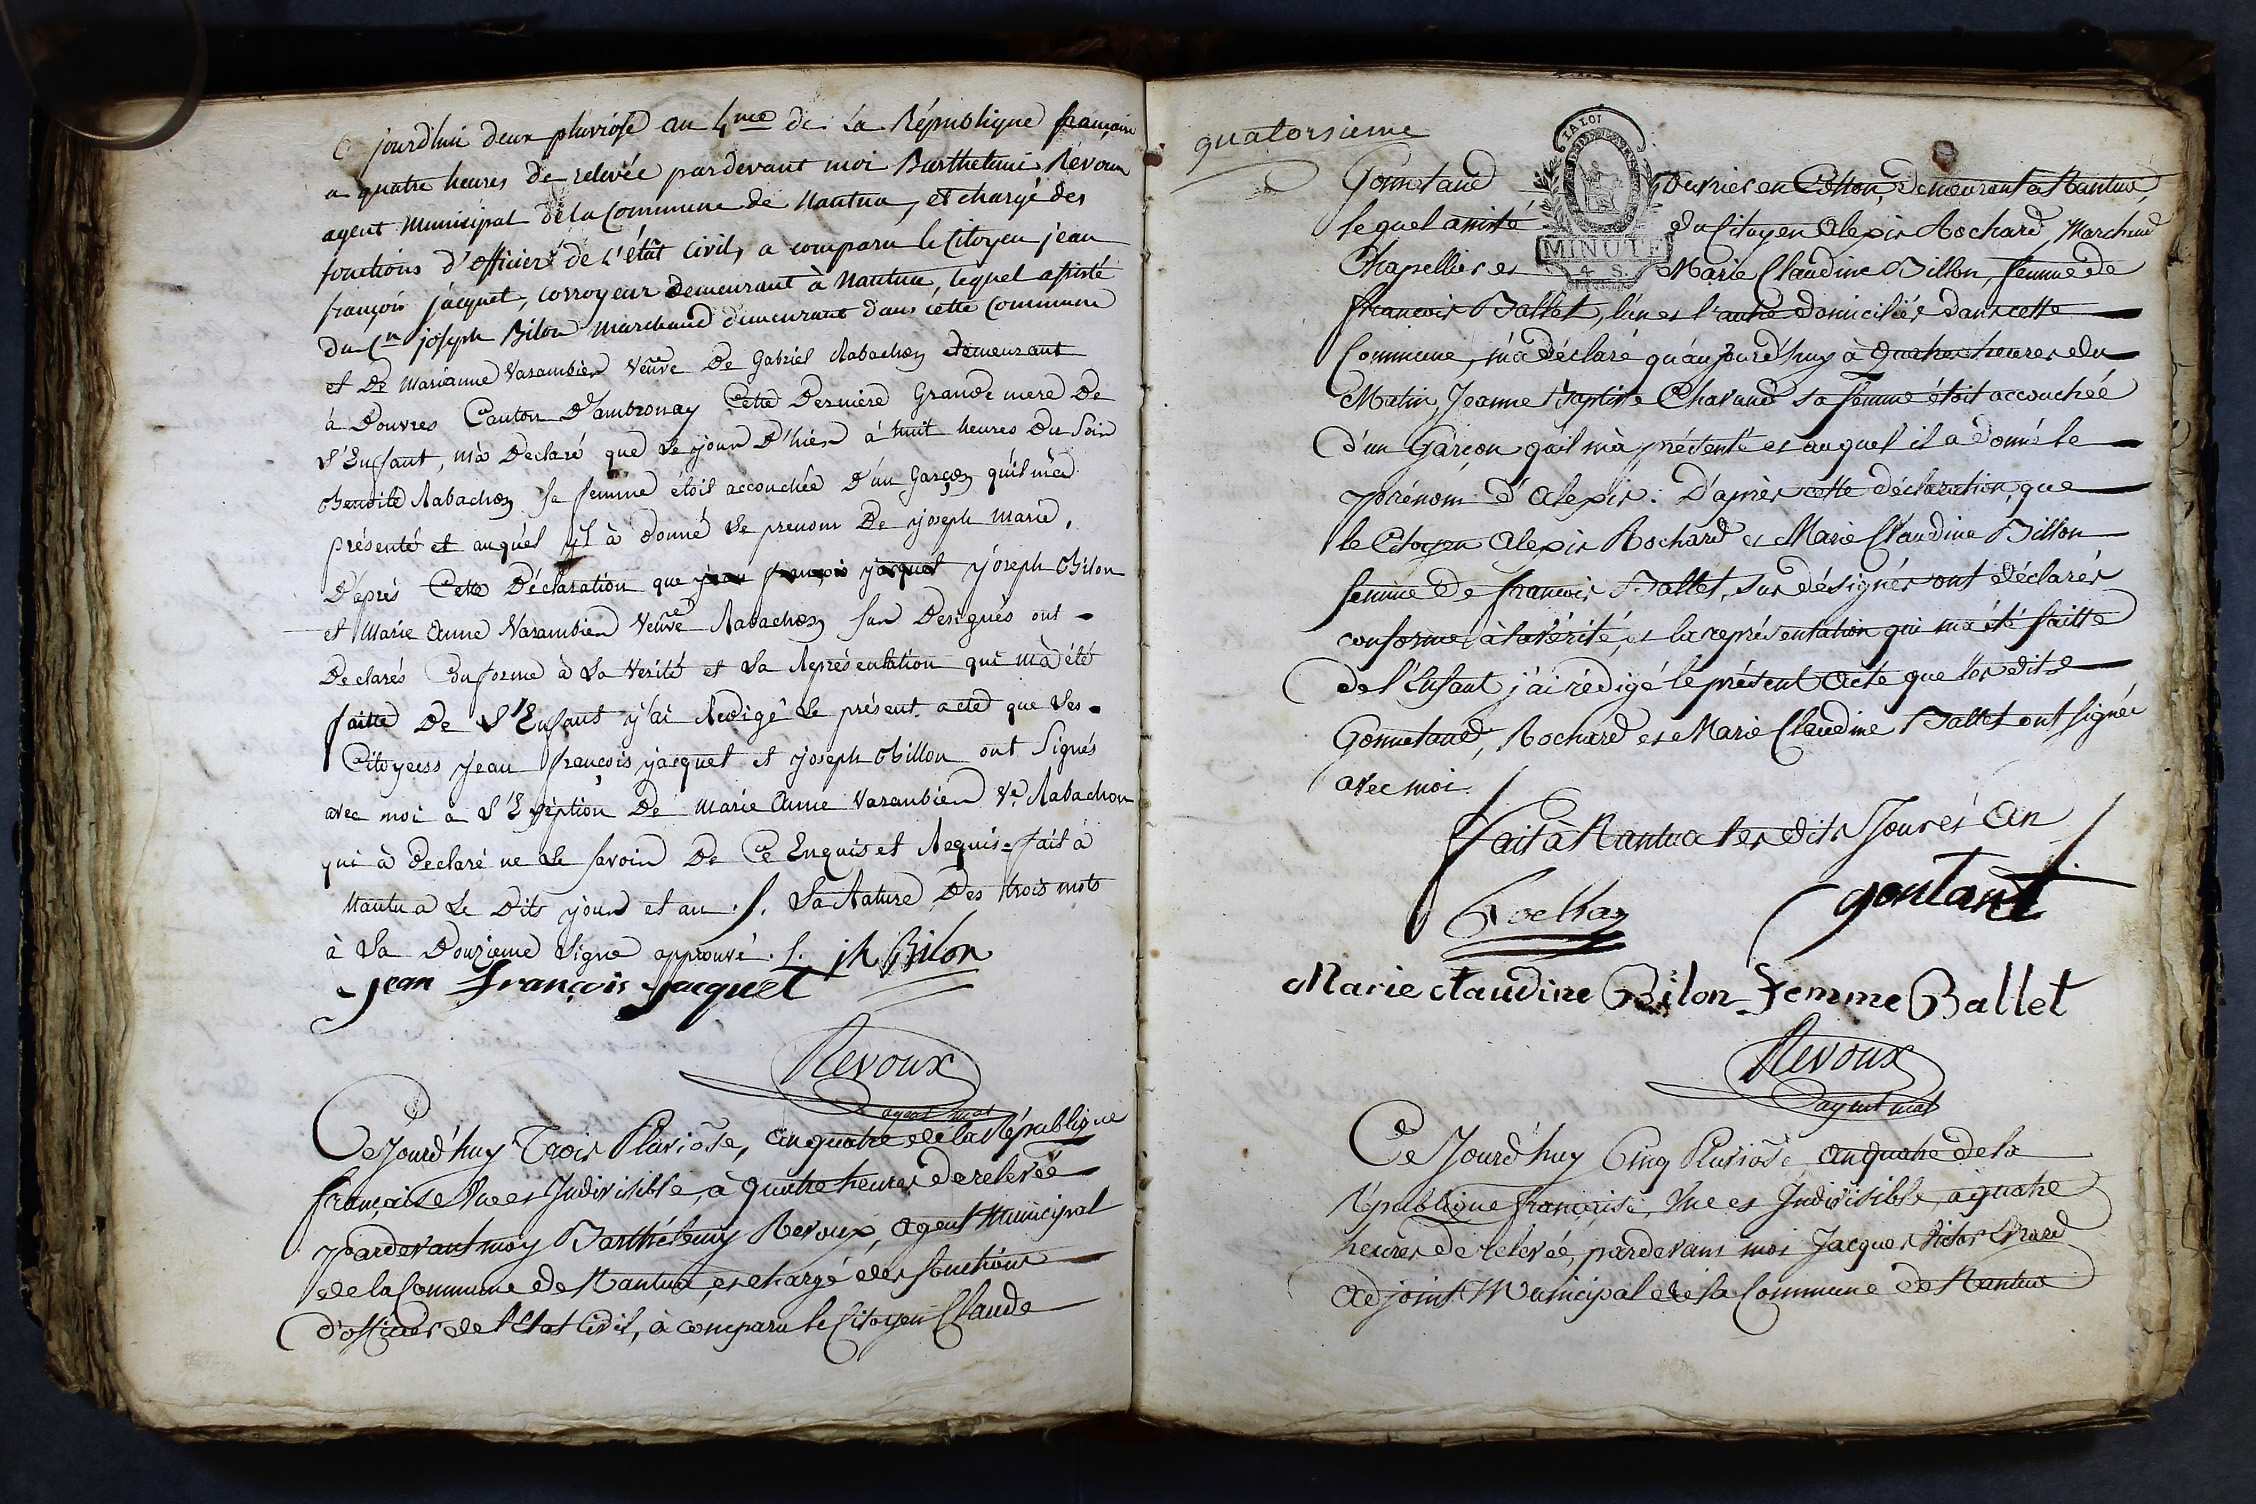 Ce jourd'hui deux pluviose an 4me de la République française
a quatre heures de relevée pardevant moi Barthelmi Revoux
agent Municipal de la Commune de Nantua, et chargé des
fonctions d'officier de l'état Civil, a comparu le Citoyen jean
françois jacquet, corroyeur demeurant à Nantua, lequel assisté
du Cn joseph Bilon Marchand demeurant dans cette Commune
et De Marianne Varambier Veuve De Gabriel Rabachon demeurant
à Douvres Canton D'ambronay Cette Derniere Grande mere De
L'Enfant, m'à Declaré que Le jour D'hier à huit heures Du Soir
Benoite Rabachon Sa femme étoit accouchée D'un Garçon qu'il m'a
présenté et auquel jl à donné Le prenom De joseph Marie,
D'après Cette Déclaration que jean françois jacquet joseph Bilon
et Marie Anne Varambier Veuve Rabachon Sus Designés ont
Declarés Conforme à La Verité et La Représentation qui m'à été
faitte De L'Enfant j'ai Redigé Le présent acte que Les
Citoyens jean françois jacquet et joseph Billon ont Signés
avec moi a L'Exeption De Marie Anne Varambier Ve. Rabachon
qui à declaré ne Le Savoir De Ce Enquis et Requis. fait à
Nantua Le Dits jour et an ./. La Rature Des trois mots
à La Douzieme Ligne approuvé ./. jh Bilon
jean françois jacquet
Revoux
agent mal
Ce Jourd'huy Trois Pluviôse, an quatre de la République
française Une et Indivisible, à quatre heures de relevée
pardevant moy Barthélemy Revoux, agent Municipal
de la Commune de Nantua, et chargé des fonctions
d'officier de l'Etat Civil, à comparu le Citoyen Claude
quatorsieme
LA LOI
MINUTE
4 S.
Gonnetand Ouvrier en Cotton, demeurant à Nantua,
lequel assisté du Citoyen Alexis Rochard, Marchand
Chapellier et Marie Claudine Billon, femme de
françois Ballet, l'un et l'autre domiciliés dans cette
Commune, m'a déclaré qu'aujourd'huy à quatre heures du
Matin, Jeanne Baptiste Chavand sa femme étoit accouchée
d'un Garçon qu'il m'à présenté et auquel il a donné le
prénom d'Alexis. D'après cette déclaration, que
le Citoyen Alexis Rochard et Marie Claudine Billon
femme de françois Ballet, sus désignés ont déclarés
conforme à la vérité, et la représentation qui m'a été faitte
de l'Enfant j'ai rédigé le présent Acte que les dits
Gonnetand, Rochard et Marie Claudine Ballet ont signés
avec moi.
fait à Nantua les dits Jour et An
gontant
Marie claudine Bilon femme Ballet
Revoux
agent mal
Ce Jourd'huy Cinq Pluviôse, an quatre de la
République française, Une et Indivisible, à quatre
heures de relevée, pardevant moi Jacques Victor
adjoint Municipal de la Commune de Nantua